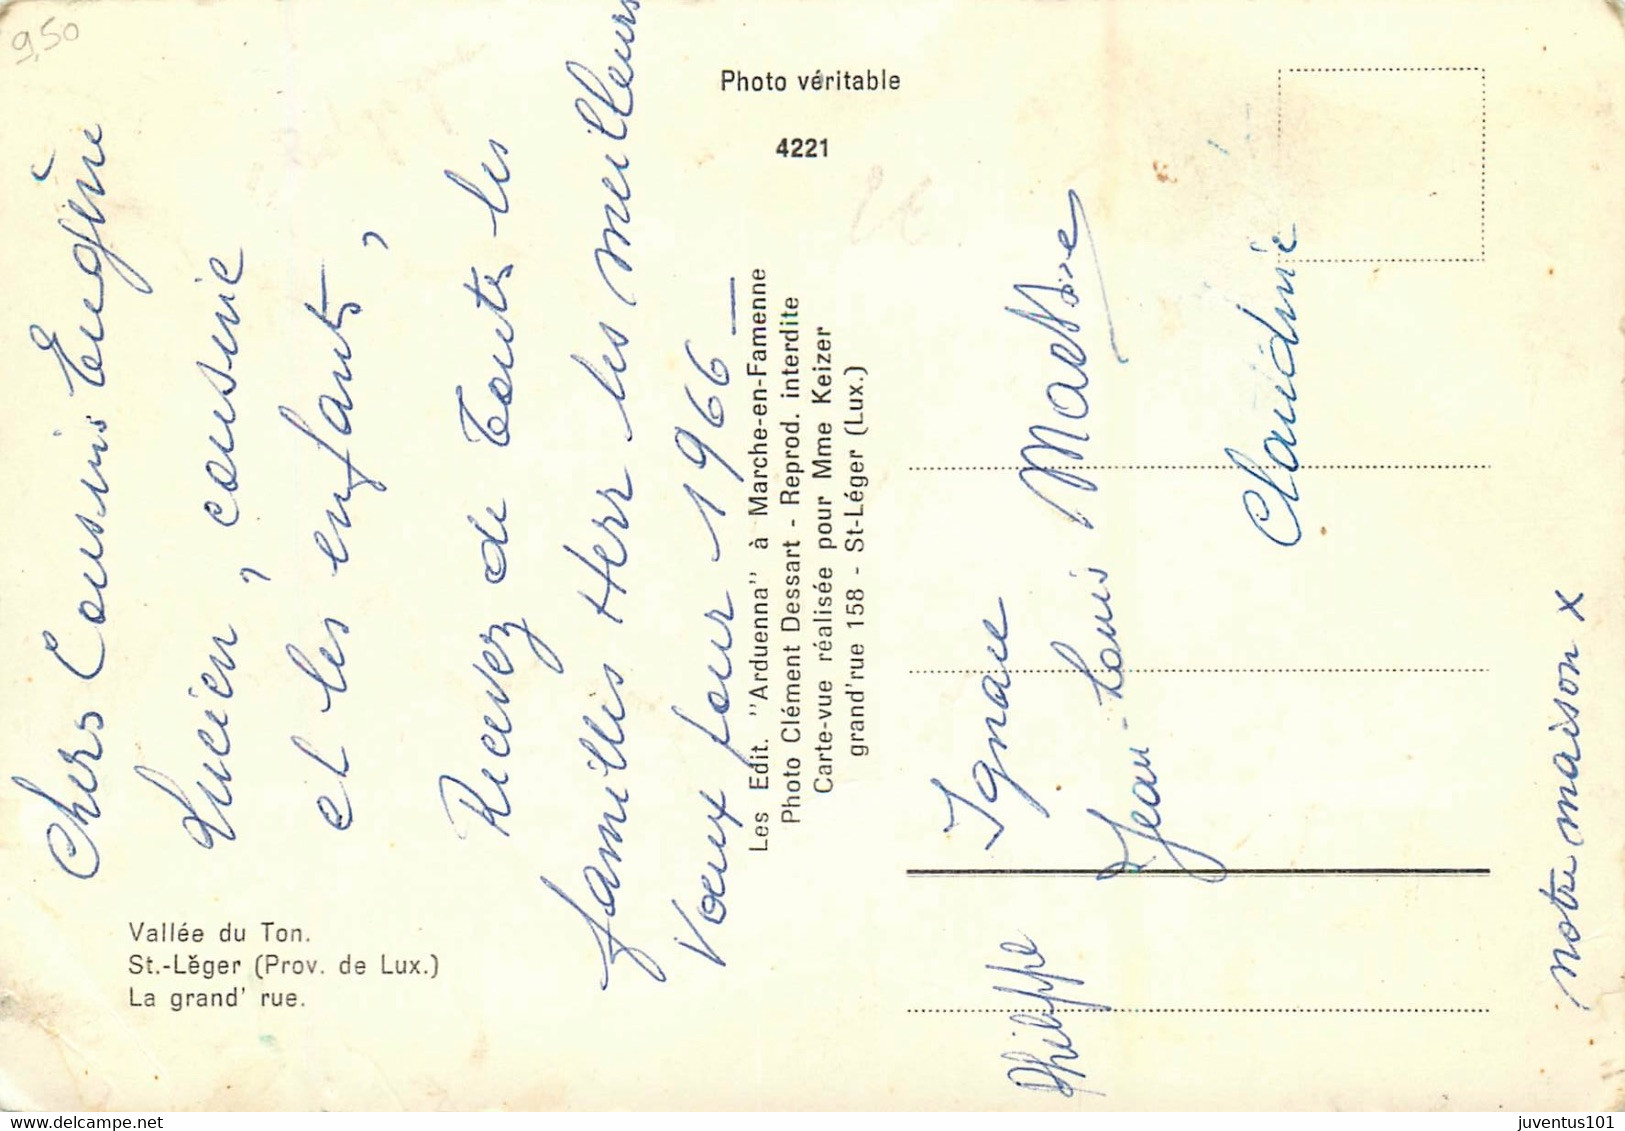 9,50
Photo véritable
4221
Chers Cousins Eugène
Lucien, cousine
et les enfants,
Recevez de toutes les
familles Herr les meilleurs
Voeux pour 1966
Les Edit. "Arduenna" à Marche-en-Famenne
Photo Clément Dessart - Reprod. interdite
Carte-vue réalisée pour Mme Keizer
grand'rue 158 - St-Léger (Lux.)
Vallée du Ton.
St.-Léger (Prov. de Lux.)
La grand' rue.
Ignace
Jean-Louis
Claudine
Philippe
notre maison x
www.delcampe.net
juventus101